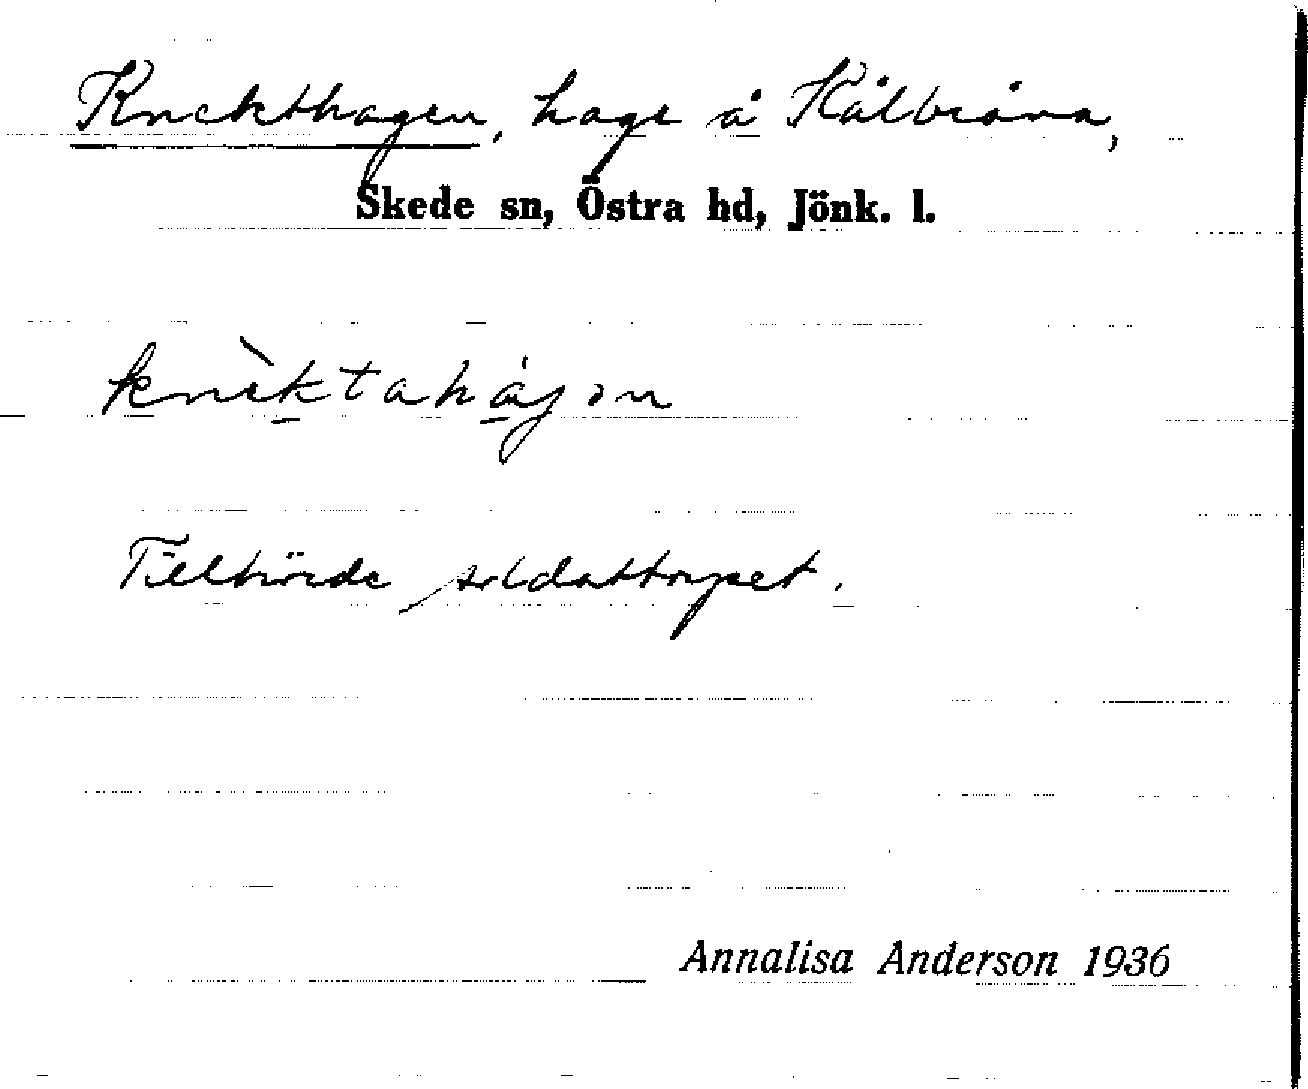 Knekthagen, hage å Kålbråna,
Skede sn, Östra hd, Jönk. l.
knèktahágən
Tillhörde soldattorpet.
Annalisa Anderson 1936